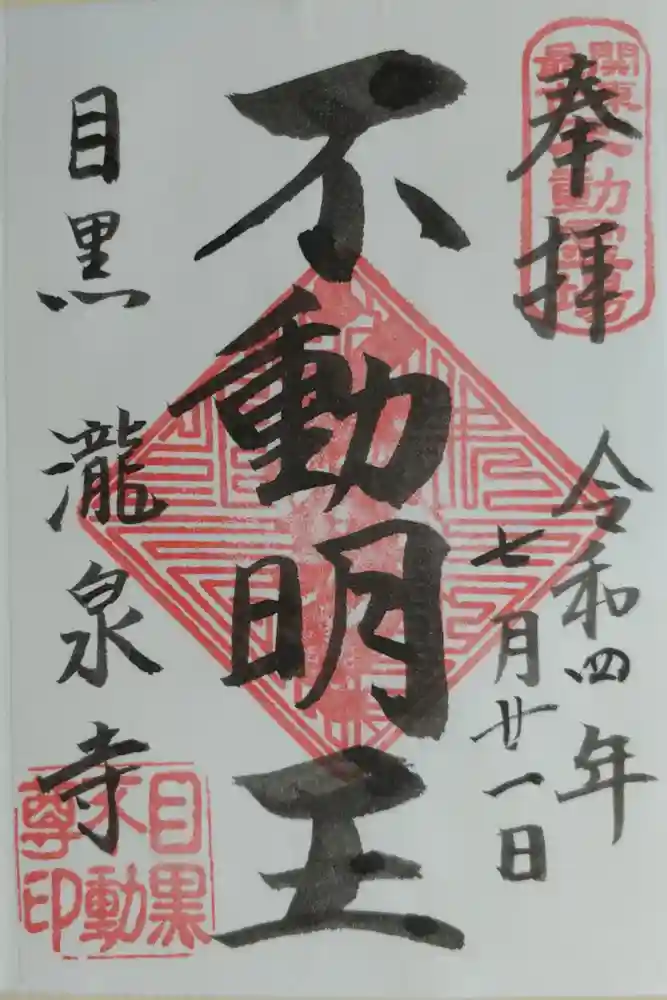 奉拝
関東
最古不動霊場
令和四年
七月廿一日
不動明王
目黒 瀧泉寺
目黒
不動
尊印